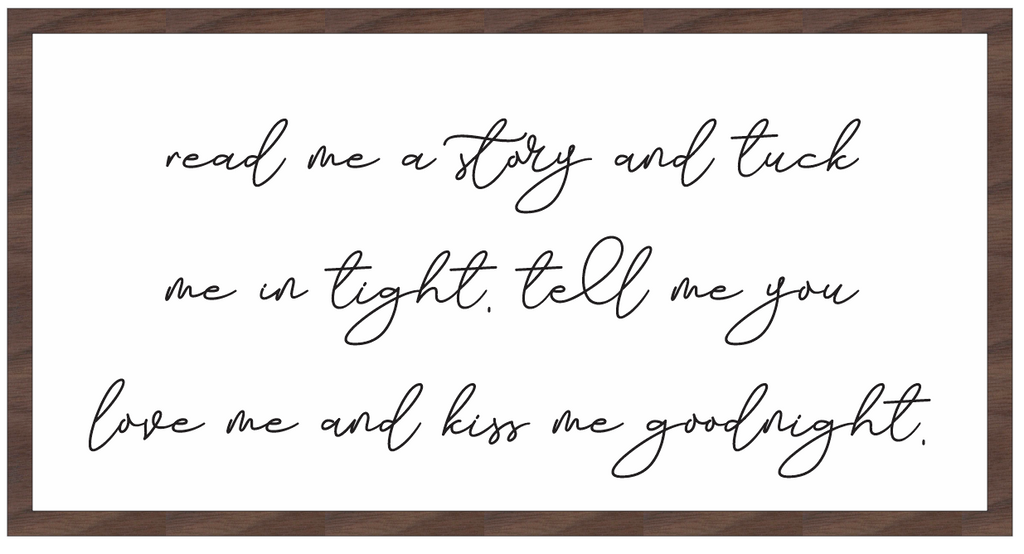 read me a story and tuck
me in tight. tell me you
love me and kiss me goodnight.